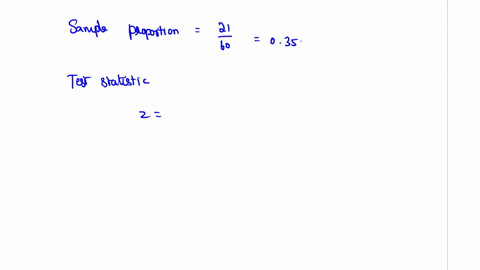 Sample proportion = 21/60 = 0.35
Test statistic
z =